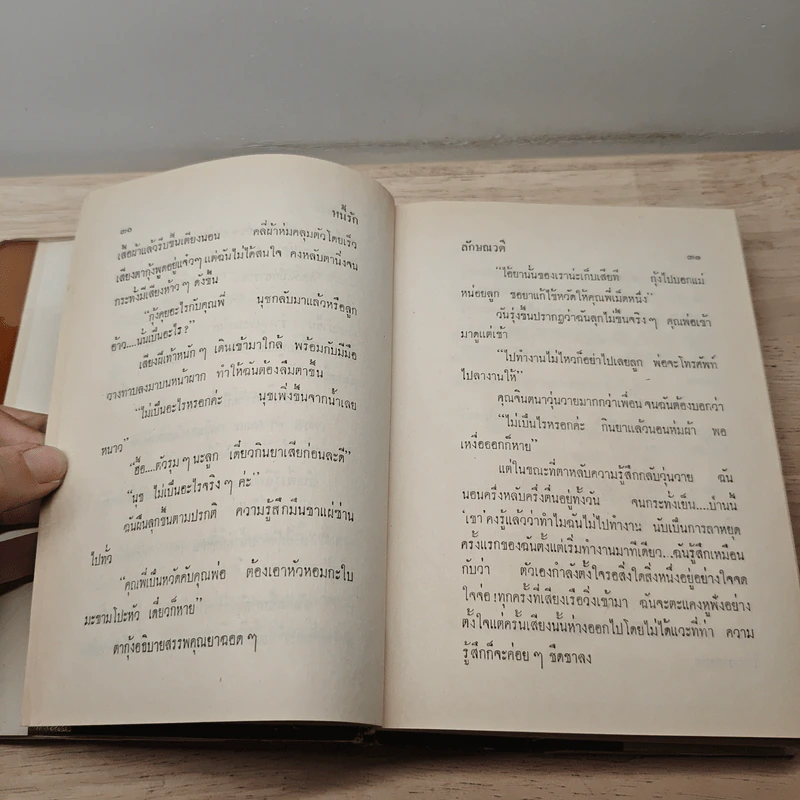 ๓๐
หนี้รัก
เสื้อผ้าแล้วรีบขึ้นเตียงนอน คลี่ผ้าห่มคลุมตัวโดยเร็ว
เสียงตากุ้งพูดอยู่แจ้วๆ แต่ฉันไม่ได้สนใจ คงหลับตานิ่งจน
กระทั่งมีเสียงห้าว ๆ ดังขึ้น
“กุ้งคุยอะไรกับคุณพี่ นุชกลับมาแล้วหรือลูก
อ้าว....นั่นเป็นอะไร?”
เสียงฝีเท้าหนัก ๆ เดินเข้ามาใกล้ พร้อมกับมีมือ
วางทาบลงมาบนหน้าผาก ทำให้ฉันต้องลืมตาขึ้น
“ไม่เป็นอะไรหรอกค่ะ นุชเพิ่งขึ้นจากน้ำเลย
หนาว”
“ฮื้อ....ตัวรุม ๆ นะลูก เดี๋ยวกินยาเสียก่อนละดี”
“นุช ไม่เป็นอะไรจริง ๆ ค่ะ”
ฉันฝืนลุกขึ้นตามปรกติ ความรู้สึกมึนชาแผ่ซ่าน
ไปทั่ว
“คุณพี่เป็นหวัดคับคุณพ่อ ต้องเอาหัวหอมกะใบ
มะขามโปะหัว เดี๋ยวก็หาย”
ตากุ้งอธิบายสรรพคุณยาฉอด ๆ
ลักษณวดี
๓๑
“ไอ้ยานั้นของเราน่ะเก็บเสียที กุ้งไปบอกแม่
หน่อยลูก ขอยาแก้ไข้หวัดให้คุณพี่เม็ดหนึ่ง”
วันรุ่งขึ้นปรากฏว่าฉันลุกไม่ขึ้นจริง ๆ คุณพ่อเข้า
มาดูแต่เช้า
“ไปทำงานไม่ไหวก็อย่าไปเลยลูก พ่อจะโทรศัพท์
ไปลางานให้”
คุณจินตนาวุ่นวายมากกว่าเพื่อน จนฉันต้องบอกว่า
“ไม่เป็นไรหรอกค่ะ กินยาแล้วนอนห่มผ้า พอ
เหงื่อออกก็หาย”
แต่ในขณะที่ตาหลับความรู้สึกกลับวุ่นวาย ฉัน
นอนครึ่งหลับครึ่งตื่นอยู่ทั้งวัน จนกระทั่งเย็น....ป่านนี้
‘เขา’ คงรู้แล้วว่าทำไมฉันไม่ไปทำงาน นับเป็นการลาหยุด
ครั้งแรกของฉันตั้งแต่เริ่มทำงานมาทีเดียว...ฉันรู้สึกเหมือน
กับว่า ตัวเองกำลังตั้งใจรอสิ่งใดสิ่งหนึ่งอยู่อย่างใจจด
ใจจ่อ! ทุกครั้งที่เสียงเรือวิ่งเข้ามา ฉันจะตะแคงหูฟังอย่าง
ตั้งใจแต่ครั้นเสียงนั้นห่างออกไปโดยไม่ได้แวะที่ท่า ความ
รู้สึกก็จะค่อย ๆ ชืดชาลง